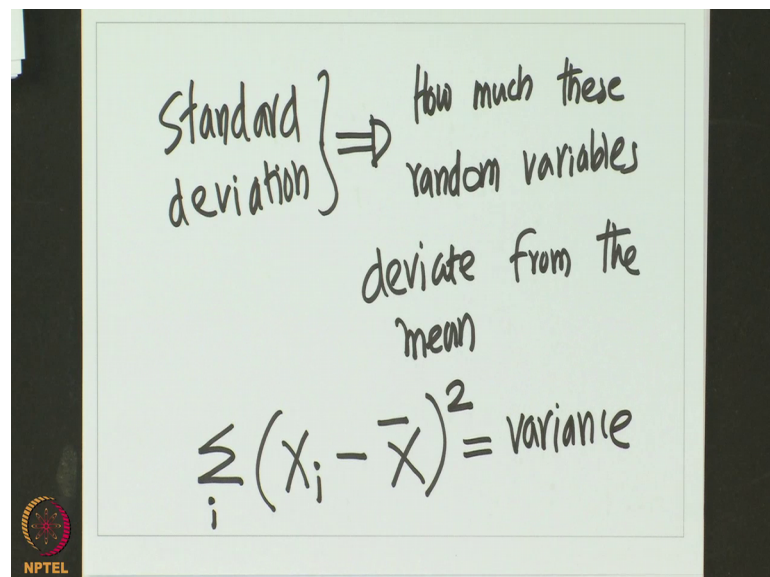 Standard deviation } ⇒ How much these
random variables
deviate from the
mean
∑_i (X_i − X̄)² = variance
NPTEL